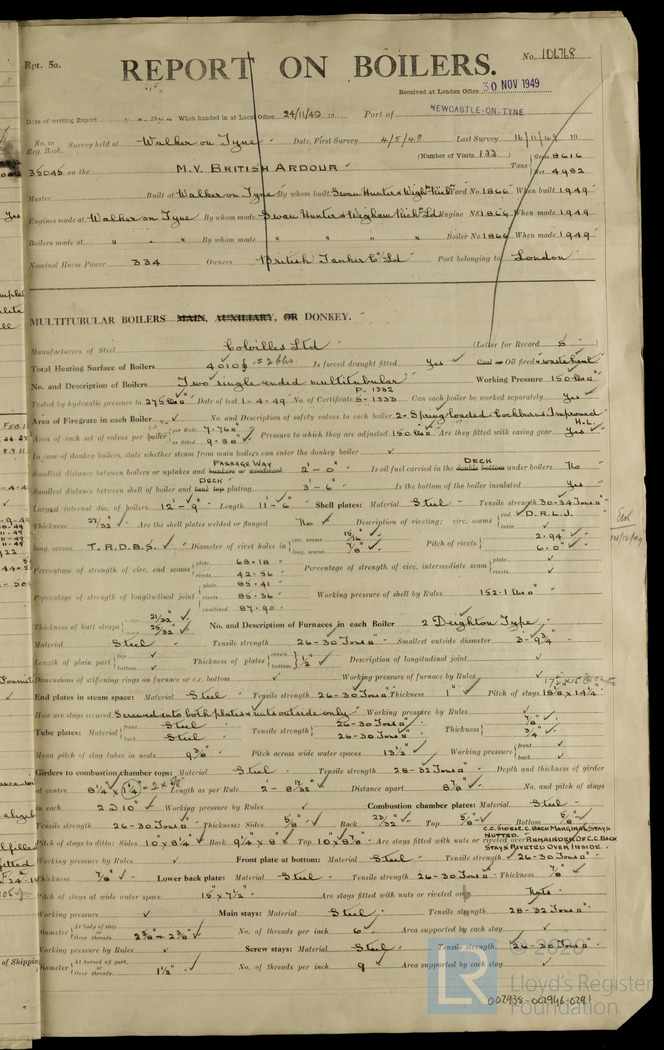 Rpt. 5a.
No. 106768
REPORT ON BOILERS.
Received at London Office 30 NOV 1949
Date of writing Report 19 When handed in at Local Office 24/11/49 19 Port of NEWCASTLE-ON-TYNE
No. in Reg. Book. Survey held at Walker on Tyne Date, First Survey 4/5/48 Last Survey 16/11/49 19
(Number of Visits 132) Gross 8616
35045 on the M.V. BRITISH ARDOUR Tons Net 4982
Master Built at Walker on Tyne By whom built Swan Hunter & Wigm Richn Yard No. 1866 When built 1949
Engines made at Walker on Tyne By whom made Swan Hunter & Wigham Richn Ld Engine No. 1866 When made 1949
Boilers made at " " " By whom made " " " " Boiler No. 1866 When made 1949
Nominal Horse Power 334 Owners British Tanker Co Ld Port belonging to London
MULTITUBULAR BOILERS MAIN, AUXILIARY, OR DONKEY.
Manufacturers of Steel Colvilles Ltd (Letter for Record S)
Total Heating Surface of Boilers 4010 = 2 bls Is forced draught fitted Yes Coal or Oil fired & waste heat
No. and Description of Boilers Two single ended multitubular Working Pressure 150 lbs
Tested by hydraulic pressure to 275 lbs Date of test 1-4-49 No. of Certificate P. 1332 S-1333 Can each boiler be worked separately Yes
Area of Firegrate in each Boiler No. and Description of safety valves to each boiler 2-Spring loaded Cockburns Improved H.L.
Area of each set of valves per boiler per Rule 7.76 as fitted 9.82 Pressure to which they are adjusted 150 lbs Are they fitted with easing gear Yes
In case of donkey boilers, state whether steam from main boilers can enter the donkey boiler
Smallest distance between boilers or uptakes and bunkers or woodwork PASSAGE WAY 2'-0" Is oil fuel carried in the double bottom DECK under boilers No
Smallest distance between shell of boiler and tank top DECK plating 3'-6" Is the bottom of the boiler insulated Yes
Largest internal dia. of boilers 12'-9" Length 11'-6" Shell plates: Material Steel Tensile strength 30-34 Tons
Thickness 27/32" Are the shell plates welded or flanged No Description of riveting: circ. seams end D.R.L.J. inter.
long. seams T.R.D.B.S. Diameter of rivet holes in circ. seams 15/16" long. seams 7/8" Pitch of rivets 2.94" 6.0"
Percentage of strength of circ. end seams plate 68.18 rivets 42.56 Percentage of strength of circ. intermediate seam plate rivets
Percentage of strength of longitudinal joint plate 85.41 rivets 85.36 combined 87.90 Working pressure of shell by Rules 152.1 lbs
Thickness of butt straps outer 21/32" inner 25/32" No. and Description of Furnaces in each Boiler 2 Deighton Type
Material Steel Tensile strength 26-30 Tons Smallest outside diameter 3'-9 3/4"
Length of plain part top bottom Thickness of plates crown bottom 1/2" Description of longitudinal joint
Dimensions of stiffening rings on furnace or c.c. bottom Working pressure of furnace by Rules
End plates in steam space: Material Steel Tensile strength 26-30 Tons Thickness 1" Pitch of stays
How are stays secured Screwed into both plates & nuts outside only Working pressure by Rules
Tube plates: Material front Steel back Steel Tensile strength 26-30 Tons 26-30 Tons Thickness 7/8" 3/4"
Mean pitch of stay tubes in nests 9 3/8" Pitch across wide water spaces 13 1/2" Working pressure front back
Girders to combustion chamber tops: Material Steel Tensile strength 28-32 Tons Depth and thickness of girder
at centre 8 1/4" x 1 1/4" = 2 x 5/8" Length as per Rule 2'-8 17/32" Distance apart 8 7/8" No. and pitch of stays
in each 2 @ 10" Working pressure by Rules Combustion chamber plates: Material Steel
Tensile strength 26-30 Tons Thickness: Sides 5/8" Back 23/32" Top 5/8" Bottom 5/8"
Pitch of stays to ditto: Sides 10 x 8 1/4" Back 9 1/4 x 8" Top 10 x 8 7/8" Are stays fitted with nuts or riveted over C.C. SIDES & C.C. BACK MARGINAL STAYS NUTTED. REMAINDER OF C.C. BACK STAYS RIVETED OVER INSIDE.
Working pressure by Rules Front plate at bottom: Material Steel Tensile strength 26-30 Tons
Thickness 7/8" Lower back plate: Material Steel Tensile strength 26-30 Tons Thickness 7/8"
Pitch of stays at wide water space 15" x 7 1/2" Are stays fitted with nuts or riveted over Nuts
Working pressure Main stays: Material Steel Tensile strength 28-32 Tons
Diameter At body of stay or Over threads 2 3/8" & 2 5/8" No. of threads per inch 6 Area supported by each stay
Working pressure by Rules Screw stays: Material Steel Tensile strength 26-30 Tons
Diameter At turned off part or Over threads 1 1/2" No. of threads per inch 9 Area supported by each stay
© 2020
LR
Lloyd's Register
Foundation
002938-002946-0291
of Shipping